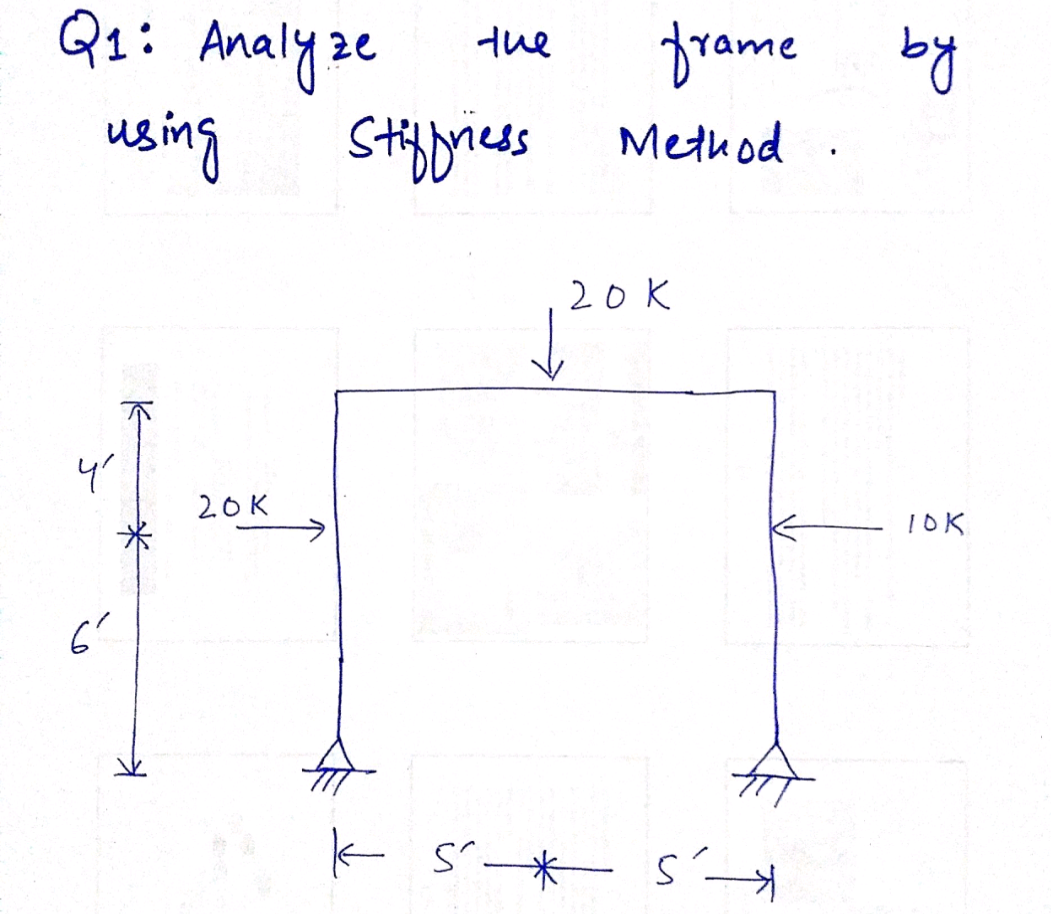 Q1: Analyze the frame by
using Stiffness Method .
20 K
4'
20K
10K
6'
5' 5'